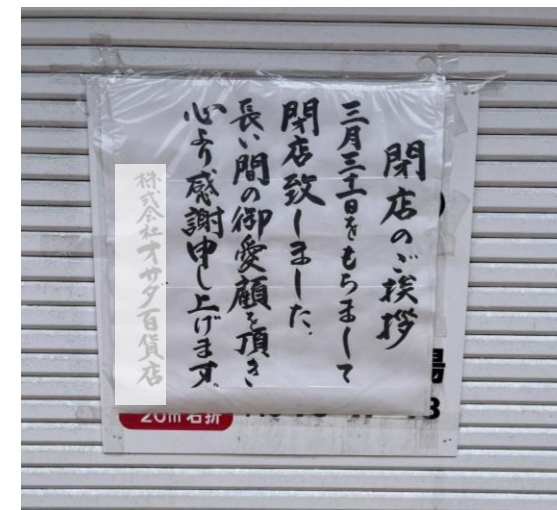 閉店のご挨拶
三月三十一日をもちまして
閉店致しました。
長い間の御愛顧を頂き
心より感謝申し上げます。
株式会社オサダ百貨店
20m右折